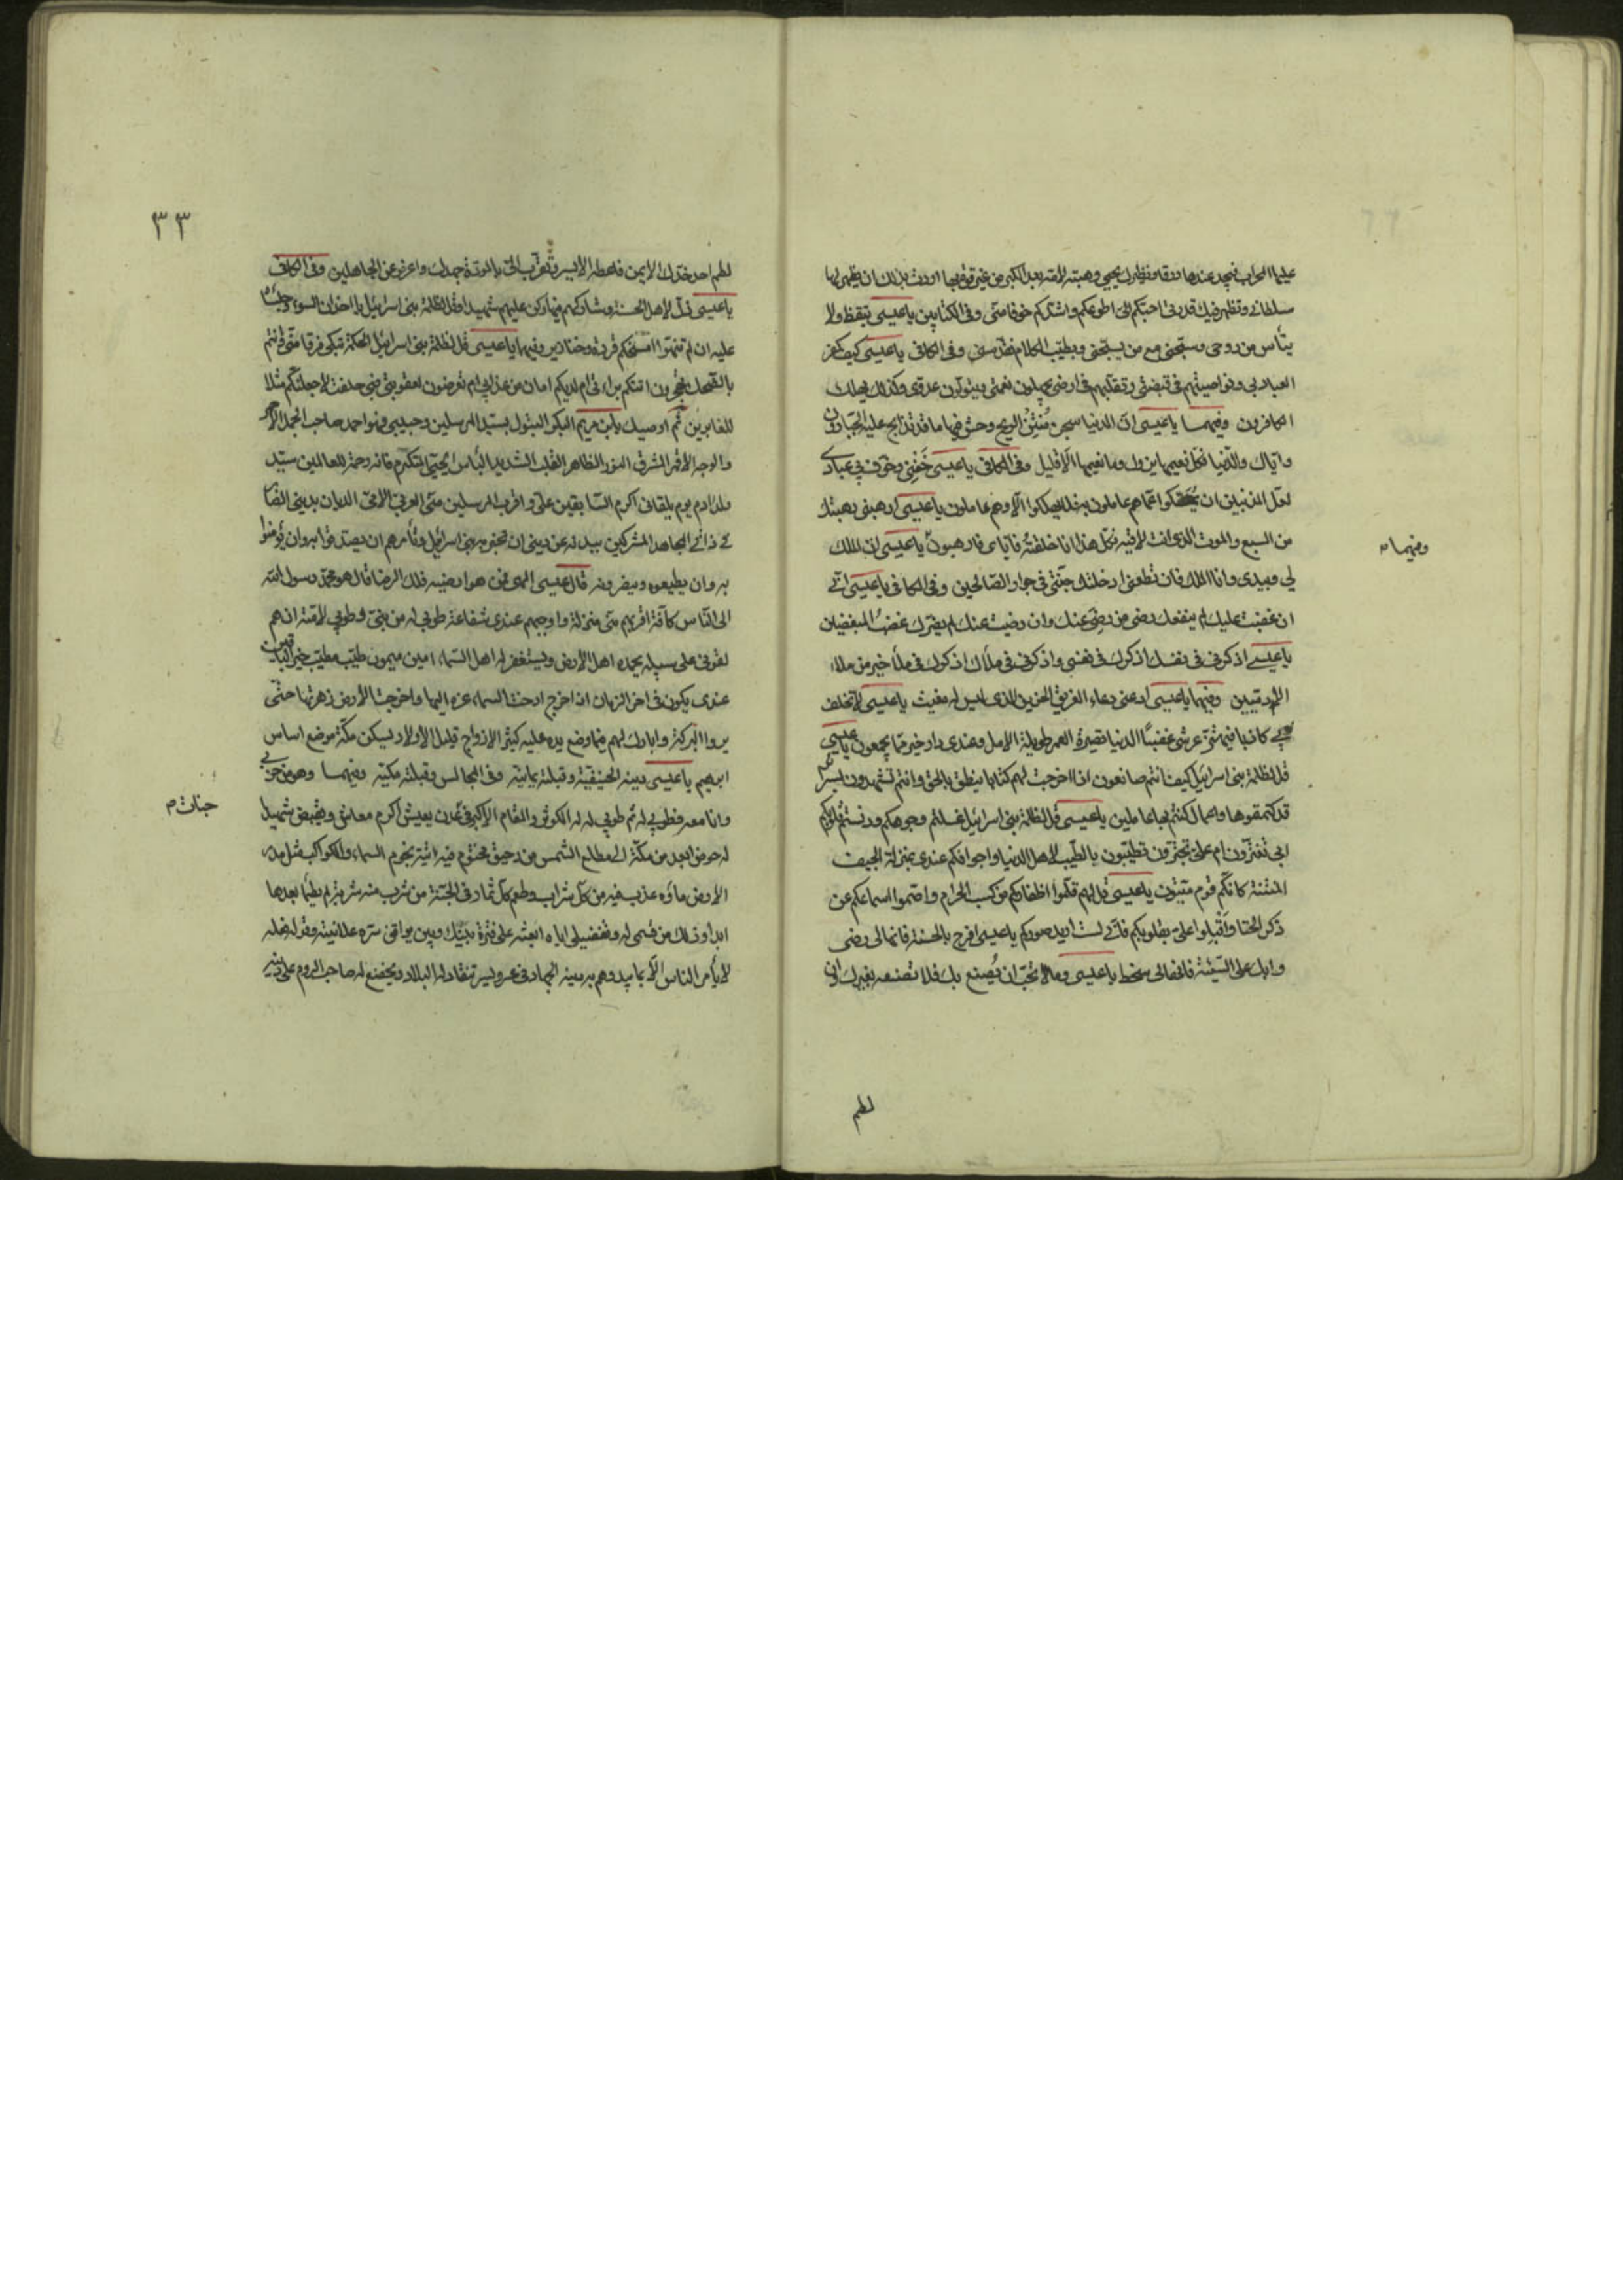 عليها المحراب فيجد عندها رزقا ونظيرك يحيى وهبته لامه بعد الكبر من غير قوة بها اردت بذلك ان يظهر لها
سلطاني وتظهر فيك قدرتي احبكم الي اطوعكم واشدكم خوفا مني وفي الكتابين يا عيسى تيقظ ولا
تيأس من روحي وسبحني مع من يسبحني وبطيب الكلام فقدسني وفي الكافي يا عيسى كيف يكفر
العباد بي ونواصيهم في قبضتي وتقلبهم في ارضي يجهلون نعمتي ويتولون عدوي وكذلك يهلك
الكافرون وفيهما يا عيسى ان الدنيا سجن منتن الريح وحش فيها ما قد تذابح عليه الجبارون
واياك والدنيا فكل نعيمها يزول وما نعيمها الا قليل وفي الكافي يا عيسى خفني وخوف بي عبادي
لعل المذنبين ان يمسكوا عما هم عاملون به فلا يهلكوا الا وهم عاملون يا عيسى ارهبني رهبتك
من السبع والموت الذي انت لاقيه فكل هذا انا خلقته فاياي فارهبون يا عيسى ان الملك
لي وبيدي وانا الملك فان تطعني ادخلتك جنتي في جوار الصالحين وفي الكافي يا عيسى اني
ان غضبت عليك لم ينفعك رضى من رضي عنك وان رضيت عنك لم يضرك غضب المغضبين
يا عيسى اذكرني في نفسك اذكرك في نفسي واذكرني في ملأك اذكرك في ملأ خير من ملأ
الآدميين وفيهما يا عيسى ادعني دعاء الغريق الحزين الذي ليس له مغيث يا عيسى لا تحلف
بي كاذبا فيهتز عرشي غضبا الدنيا قصيرة العمر طويلة الامل وعندي دار خير مما يجمعون يا عيسى
قل لظلمة بني اسرائيل كيف انتم صانعون اذا اخرجت لكم كتابا ينطق بالحق وانتم تشهدون بسرائر
قد كتمتموها واعمال كنتم بها عاملين يا عيسى قل لظلمة بني اسرائيل غسلتم وجوهكم ودنستم قلوبكم
ابي تغترون ام علي تجترون تطيبون بالطيب لاهل الدنيا واجوافكم عندي بمنزلة الجيف
المنتنة كانكم قوم ميتون يا عيسى قل لهم قلموا اظفاركم من كسب الحرام واصموا اسماعكم عن
ذكر الخنا واقبلوا علي بقلوبكم فاني لست اريد صوركم يا عيسى افرح بالحسنة فانها لي رضى
وابك على السيئة فانها لي سخط يا عيسى وما لا تحب ان يصنع بك فلا تصنعه بغيرك وان
لطم
وفيهما
٣٣
لطم احد خدك الايمن فاعطه الايسر وتقرب الي بالمودة جهدك واعرض عن الجاهلين وفي الكافي
يا عيسى ذل لاهل الحسنة وشاركهم فيها وكن عليهم شهيدا وقل لظلمة بني اسرائيل يا اخدان السوء وجلساء
عليه ان لم تنتهوا امسخكم قردة وخنازير وفيهما يا عيسى قل لظلمة بني اسرائيل الحكمة تبكي فرقا مني وانتم
بالضحك تهجرون اتتكم براءتي ام لديكم امان من عذابي ام تعرضون لعقوبتي فبي حلفت لاجعلنكم مثلا
للغابرين ثم اوصيك يا بن مريم البكر البتول بسيد المرسلين وحبيبي فهو احمد صاحب الجمل الاحمر
والوجه الاقمر المشرق النور الطاهر القلب الشديد البأس الحيي المتكرم فانه رحمة للعالمين سيد
ولد ادم يوم يلقاني اكرم السابقين علي واقرب المرسلين مني العربي الامي الديان بديني الصابر
في ذاتي المجاهد المشركين بيده عن ديني ان تخبر به بني اسرائيل وتأمرهم ان يصدقوا به وان يؤمنوا
به وان يطيعوه وينصروه قال عيسى الهي فمن هو ارضيه فلك الرضا قال هو محمد رسول الله
الى الناس كافة اقربهم مني منزلة واوجبهم عندي شفاعة طوبى له من نبي وطوبى لامته ان هم
لقوني على سبيله يحمده اهل الارض ويستغفر له اهل السماء امين ميمون طيب مطيب خير الباقين
عندي يكون في اخر الزمان اذا خرج ارخت السماء عزاليها واخرجت الارض زهرتها حتى
يروا البركة وابارك لهم فيما وضع يده عليه كثير الازواج قليل الاولاد يسكن مكة موضع اساس
ابرهيم يا عيسى دينه الحنيفية وقبلته يمانية وفي المجالس وقبلته مكية وفيهما وهو من حزبي
وانا معه فطوبى له ثم طوبى له له الكوثر والمقام الاكبر في عدن يعيش اكرم معاش ويقبض شهيدا
له حوض ابعد من مكة الى مطلع الشمس من رحيق مختوم فيه انية بنجوم السماء واكواب مثل مدر
الارض ماؤه عذب فيه من كل شراب وطعم كل ثمار في الجنة من شرب منه شربة لم يظمأ بعدها
ابدا وذلك من قسمي له وتفضيلي اياه ابعثه على فترة بينك وبينه يوافق سره علانيته وقوله فعله
لا يأمر الناس الا بما يبدوهم به دينه الجهاد في عسر ويسر تنقاد له البلاد ويخضع له صاحب الروم على دينه
جنات م